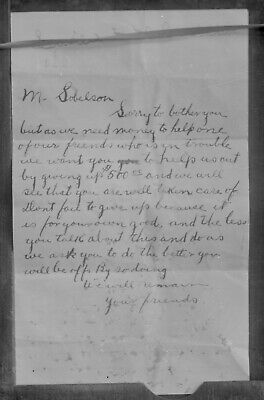 Mr Sobelson
Sorry to bother you
but as we need money to help one
of our friends who is in trouble
we want you to help us out
by giving up $500 00 and we will
see that you are well taken care of
Dont fail to give up because it
is for your own good, and the less
you talk about this and do as
we ask you to do the better you
will be off. By so doing
We will remain
Your friends.